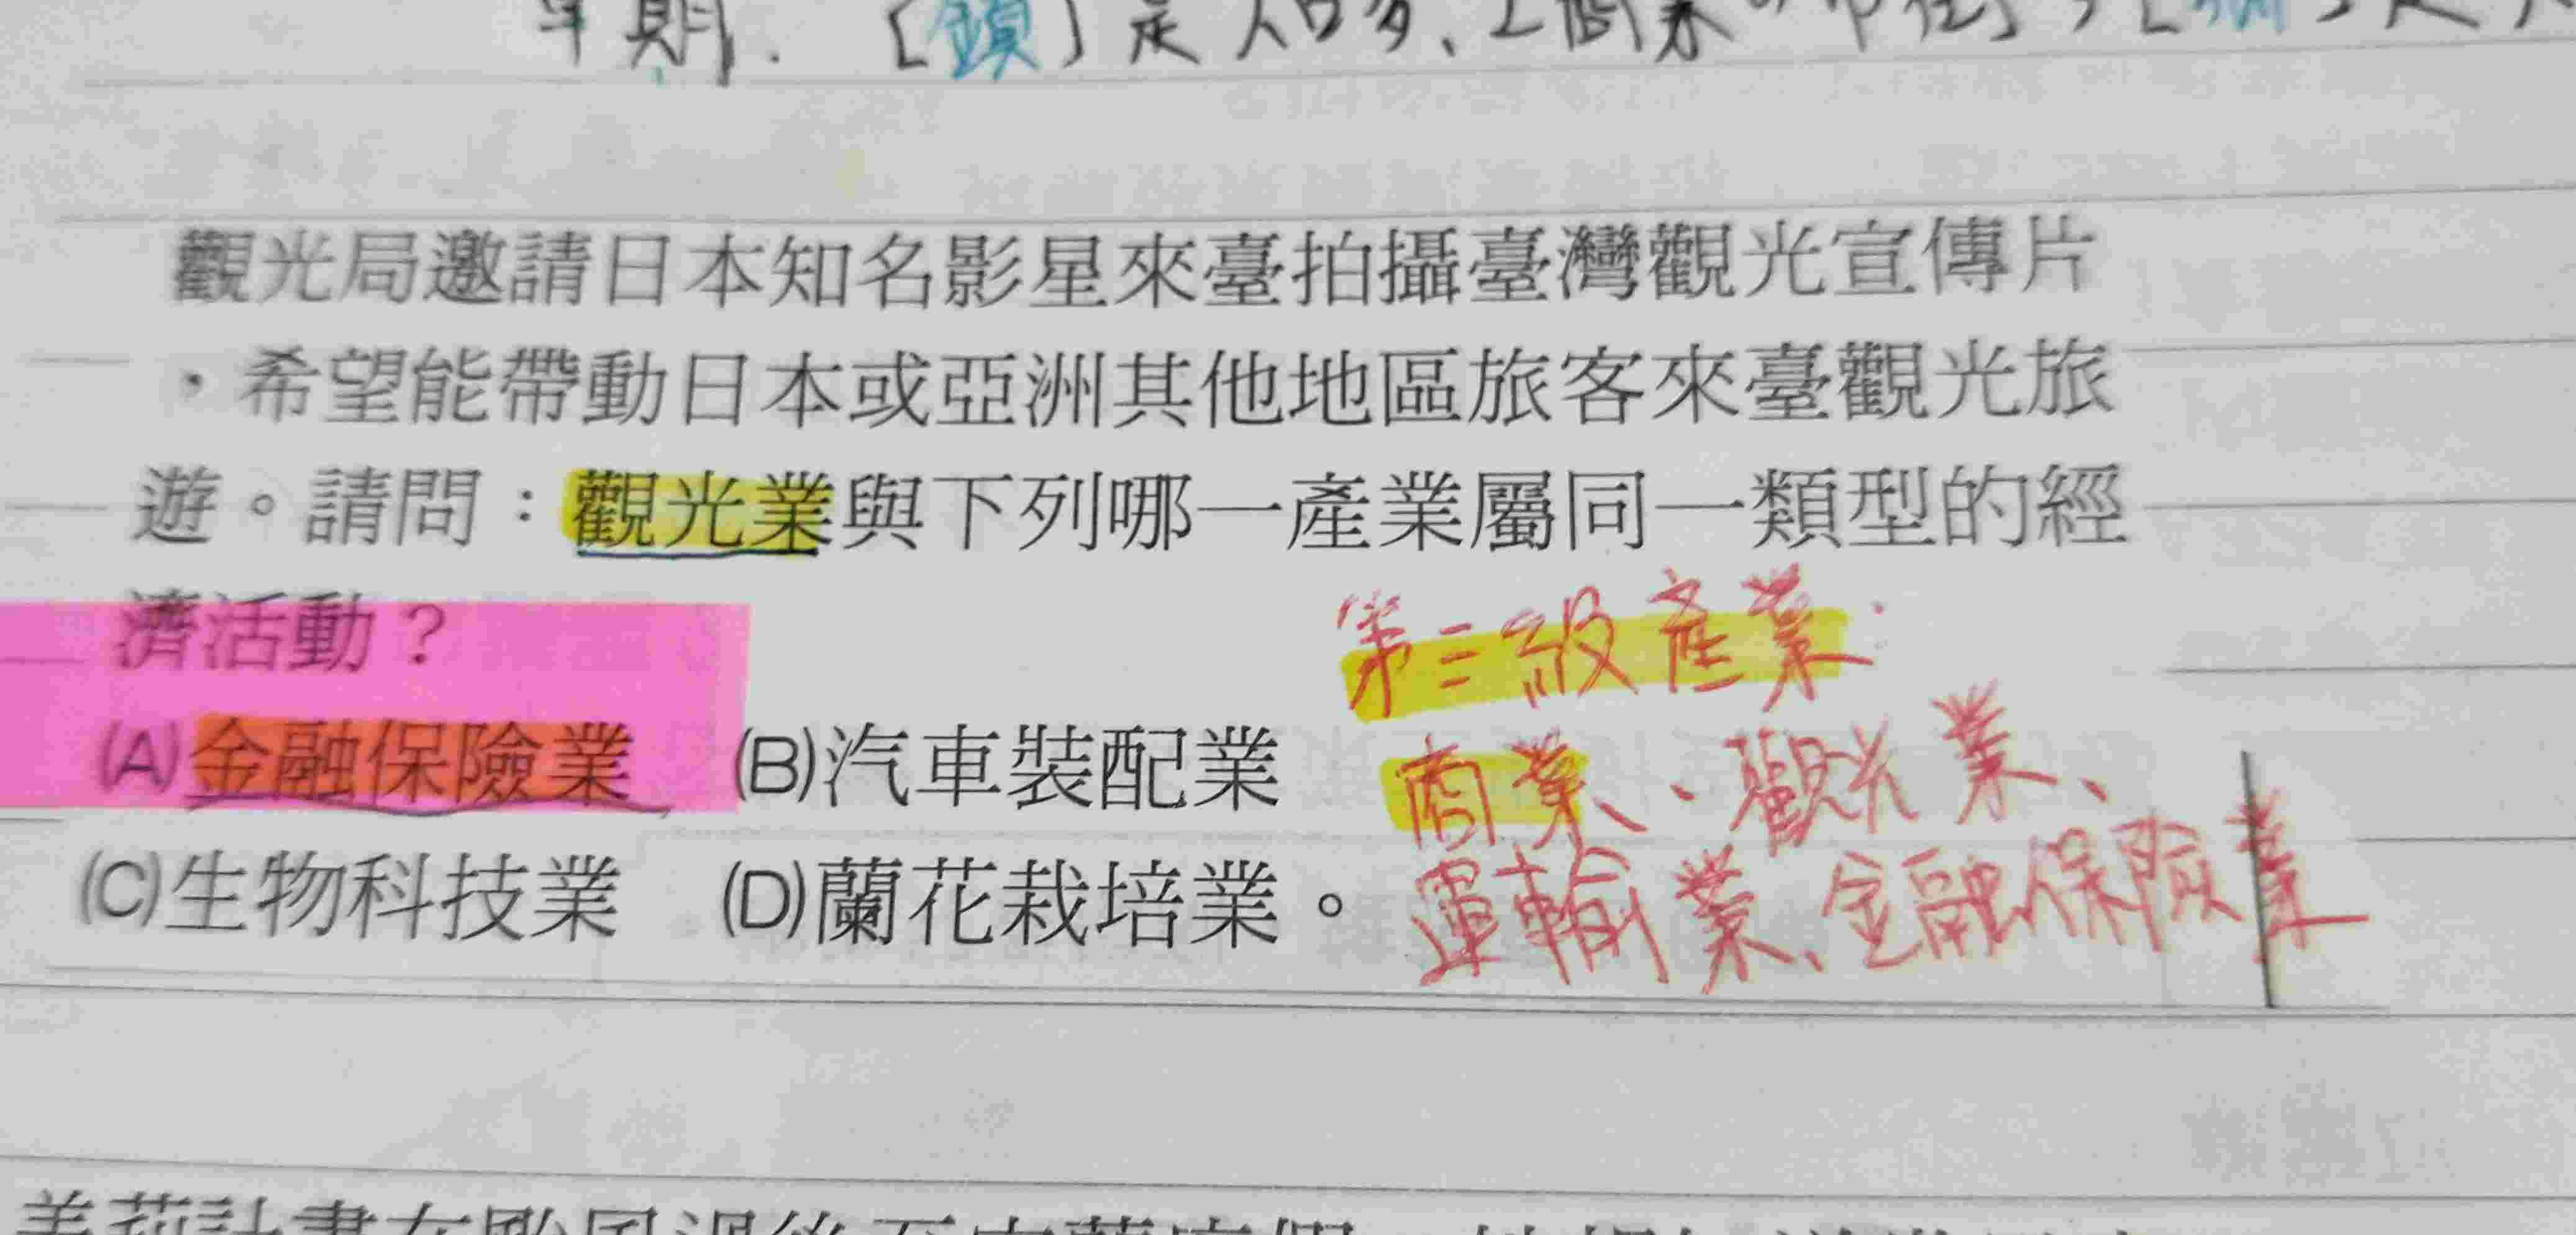 早期．〔鎮〕是人口多、工商業
觀光局邀請日本知名影星來臺拍攝臺灣觀光宣傳片
，希望能帶動日本或亞洲其他地區旅客來臺觀光旅
遊。請問：觀光業與下列哪一產業屬同一類型的經
濟活動？
第三級產業：
(A)金融保險業 (B)汽車裝配業
商業、觀光業、
(C)生物科技業 (D)蘭花栽培業。
運輸業、金融保險業